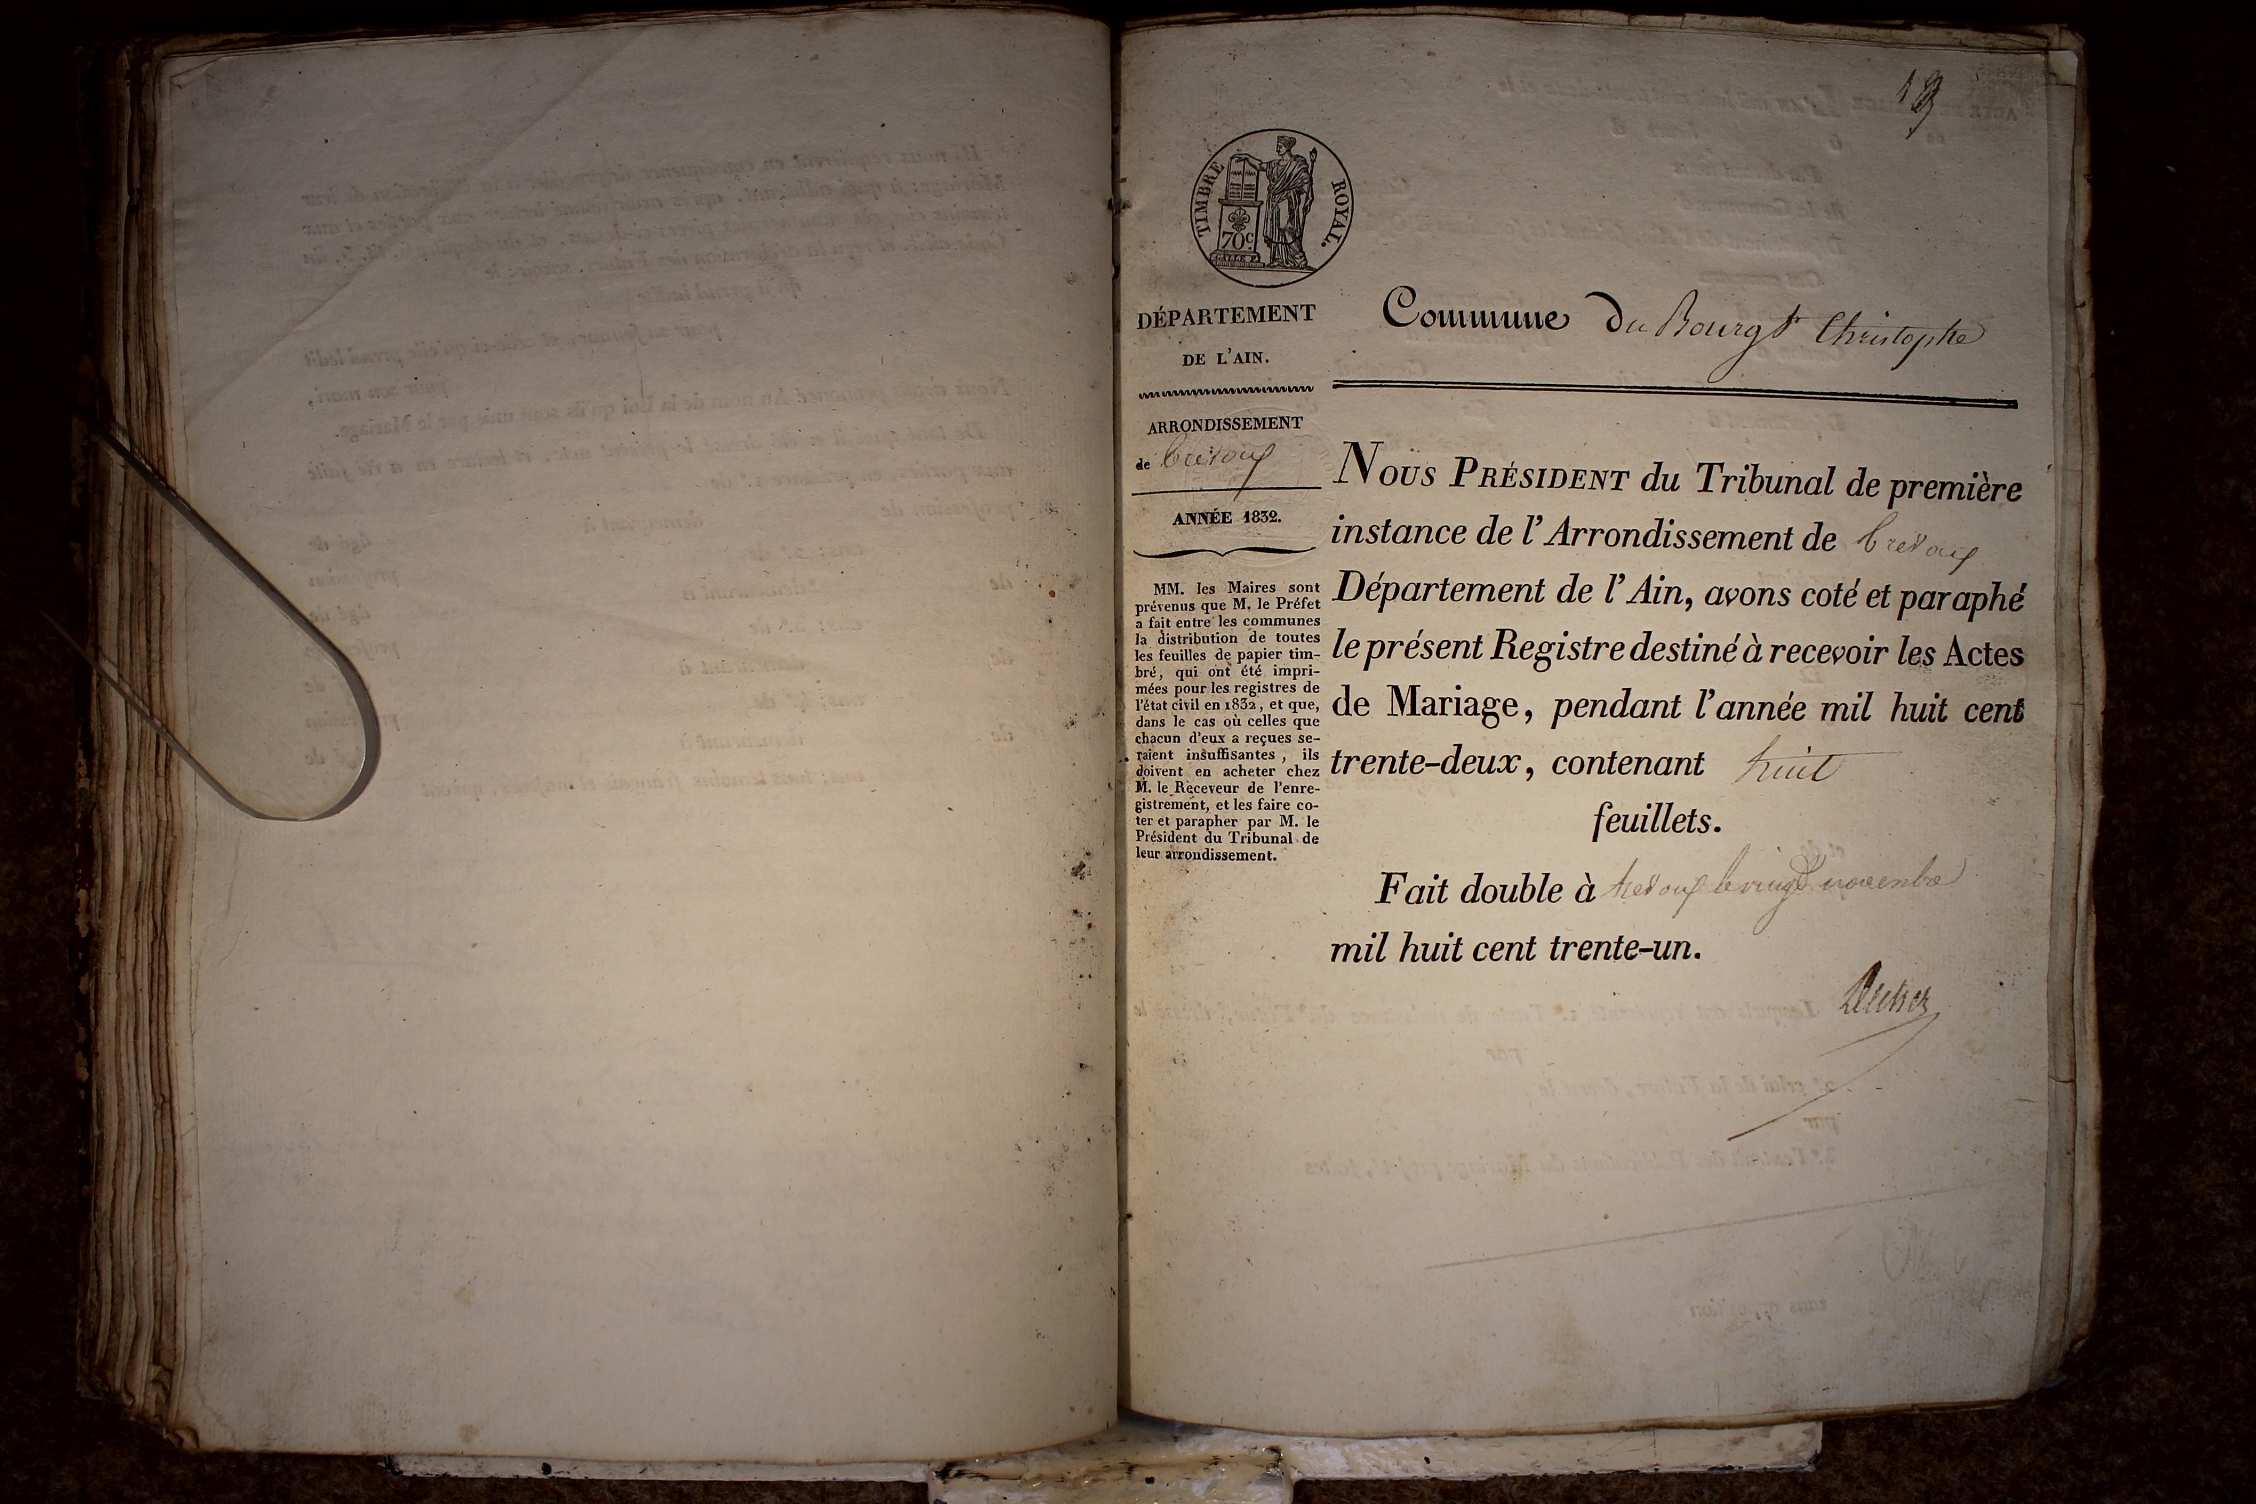 TIMBRE ROYAL.
70c
DÉPARTEMENT
DE L'AIN.
ARRONDISSEMENT
de Trevoux
ANNÉE 1832.
MM. les Maires sont
prévenus que M. le Préfet
a fait entre les communes
la distribution de toutes
les feuilles de papier tim-
bré, qui ont été impri-
mées pour les registres de
l'état civil en 1832, et que,
dans le cas où celles que
chacun d'eux a reçues se-
raient insuffisantes, ils
doivent en acheter chez
M. le Receveur de l'enre-
gistrement, et les faire co-
ter et parapher par M. le
Président du Tribunal de
leur arrondissement.
Commune Du Bourg St Christophe
NOUS PRÉSIDENT du Tribunal de première
instance de l'Arrondissement de Trevoux
Département de l'Ain, avons coté et paraphé
le présent Registre destiné à recevoir les Actes
de Mariage, pendant l'année mil huit cent
trente-deux, contenant huit
feuillets.
Fait double à trevoux le vingt novembre
mil huit cent trente-un.